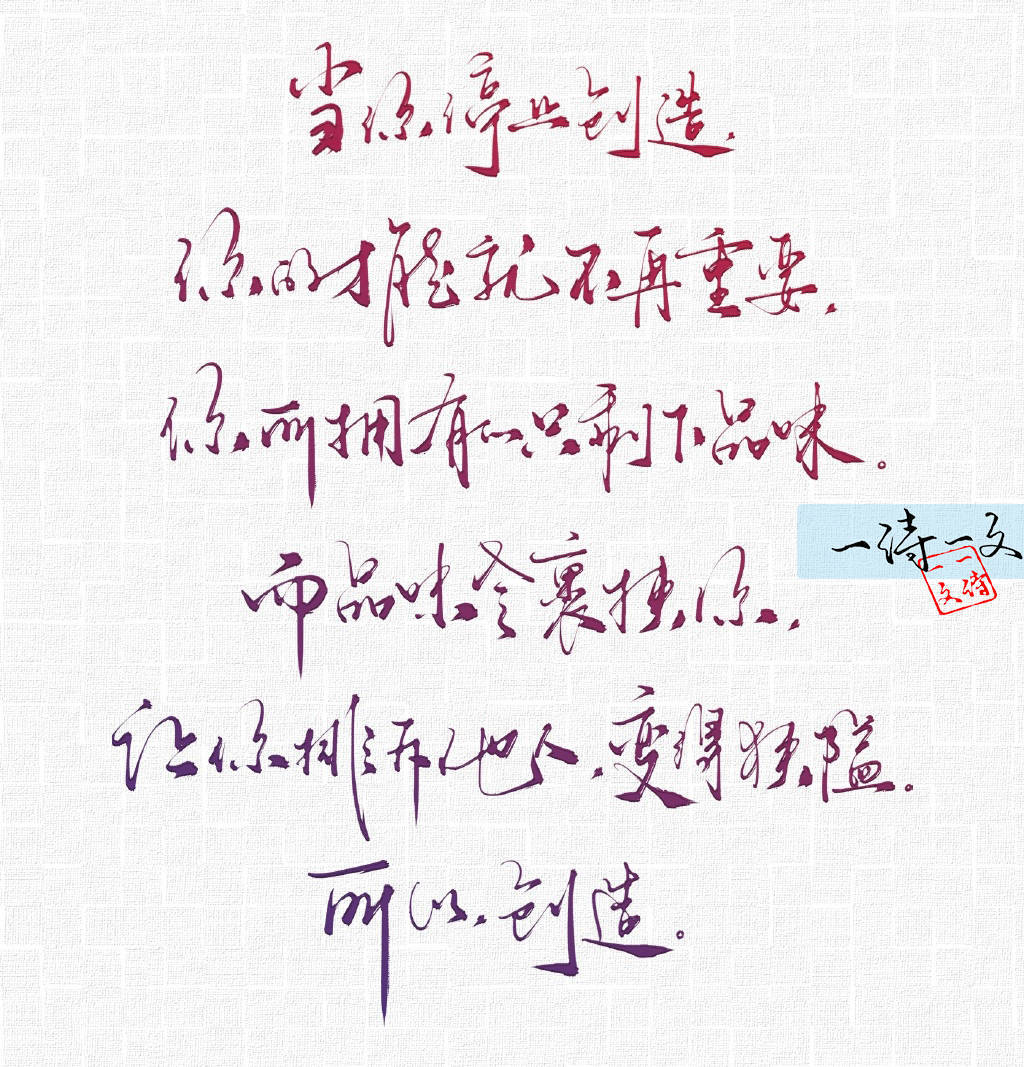 当你停止创造，
你的才能就不再重要，
你所拥有的只剩下品味。
一诗一文
一一
文诗
而品味会裹挟你，
让你排斥他人，变得狭隘。
所以，创造。